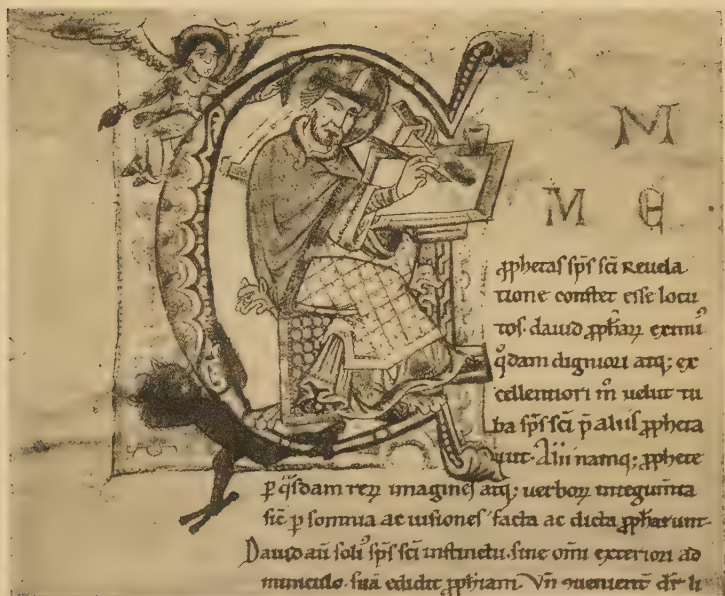 M
M E
ꝓphetas sp̄s sc̄i reuela
tione constet esse locu
tos. dauid ꝓphaꝝ eximiꝰ
q̊dam digniori atq; ex
cellentiori m̊ uelut tu
ba sp̄s sc̄i p̄ aliis ꝓpheta
uit. Alii namq; ꝓphete
ꝑ q̊sdam reꝝ imagines atq; uerboꝝ integum̄ta
sic̄ ꝑ somnia ac uisiones facta ac dicta ꝓpharunt.
Dauid aū soliꝰ sp̄s sc̄i instinctu. sine om̄i exteriori ad
miniculo. suā edidit ꝓphiam. Vn̄ ꝯuenient̄ dr̄ li